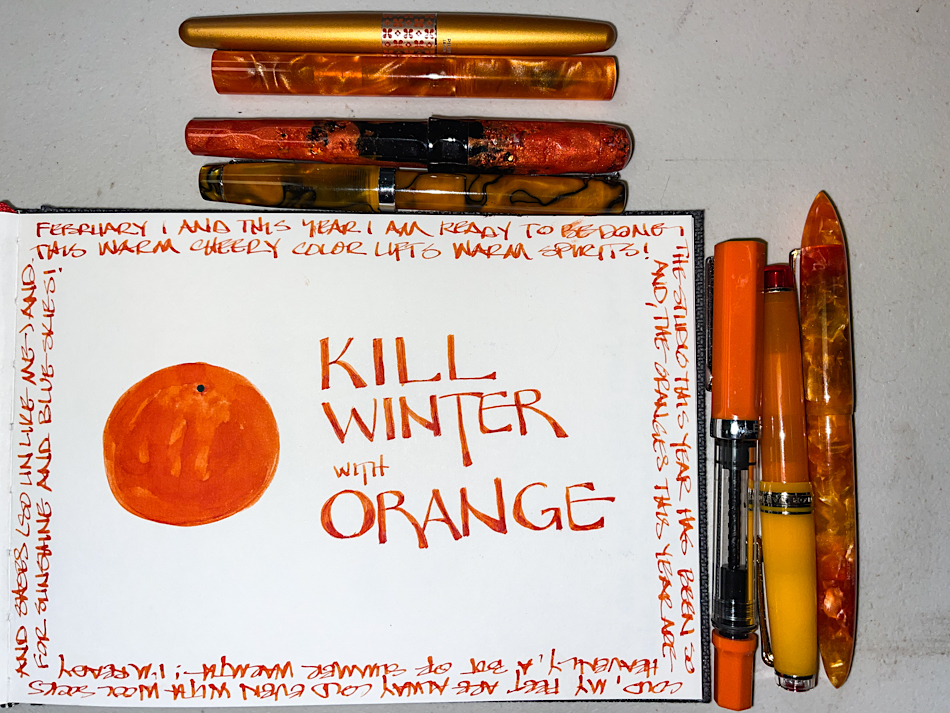 FEBRUARY 1 AND THIS YEAR I AM READY TO BE DONE!
THE STUDIO THIS YEAR HAS BEEN SO
COLD, MY FEET ARE ALWAY COLD EVEN WITH WOOL SOCKS
AND SHOES (SO UNLIKE ME) AND
THIS WARM CHEERY COLOR LIFTS WARM SPIRITS!
AND, THE ORANGES THIS YEAR ARE
HEAVENLY, A BIT OF SUMMER WARMTH! I'M READY
FOR SUNSHINE AND BLUE SKIES!
KILL
WINTER
WITH
ORANGE